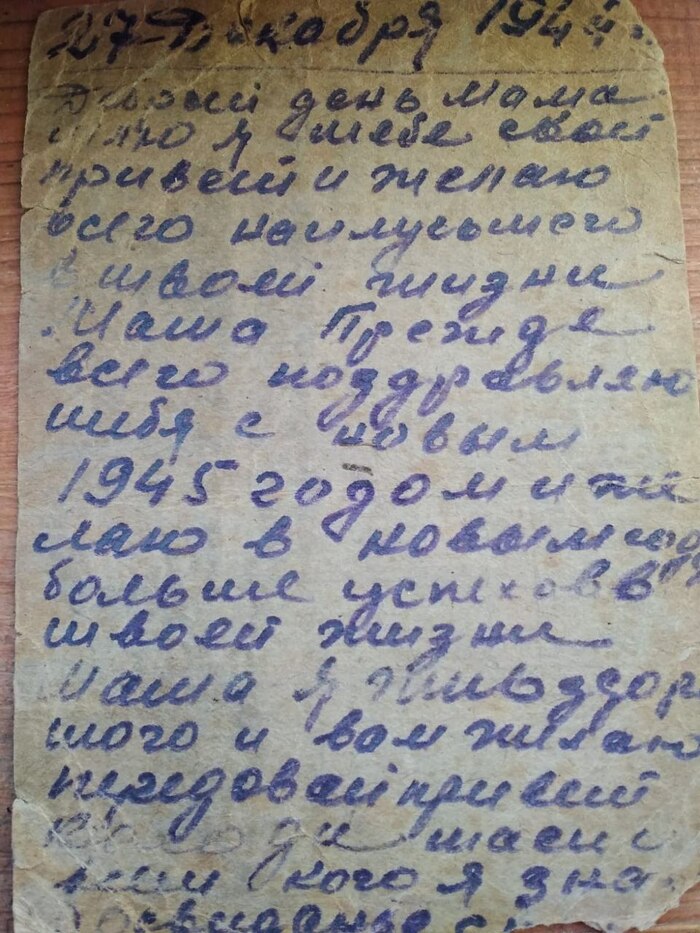 27 Декабря 1944 г.
Добрый день Маша
шлю я тебе свой
привет и желаю
всего наилучьшего
в твоей жизни
Маша Прежде
всего поздравляю
тибя с новым
1945 годом и же
лаю в новым году
больше успехов в
твоей жизни
Маша я жив здоров
того и вам желаю
передовай привет
всем кого я зна
Досвиданье